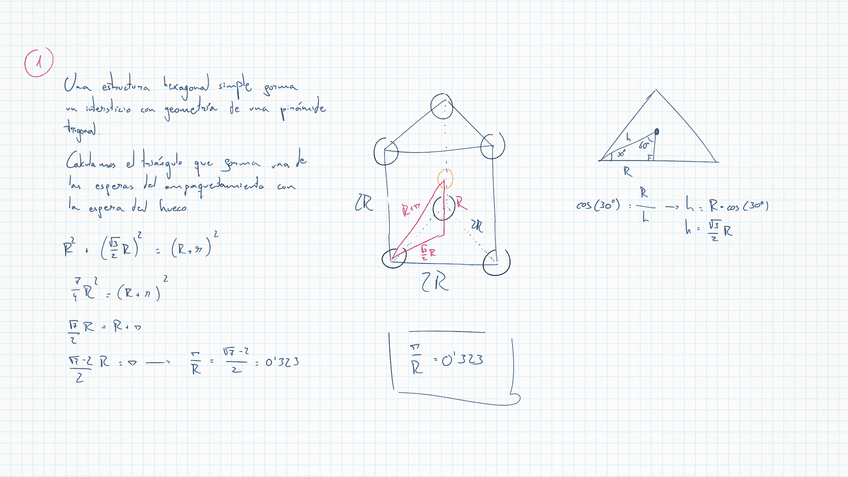 1
Una estructura hexagonal simple forma
un intersticio con geometría de una pirámide
trigonal.
Calculamos el triángulo que forma una de
las esferas del empaquetamiento con
la esfera del hueco.
R² + (√3/2 R)² = (R+r)²
7/4 R² = (R+r)²
√7/2 R = R+r
√7-2/2 R = r → r/R = √7-2/2 = 0'323
2R
R+r
R
2R
√3/2 R
2R
r/R = 0'323
h
60°
30°
R
cos(30°) = R/h → h = R·cos(30°)
h = √3/2 R